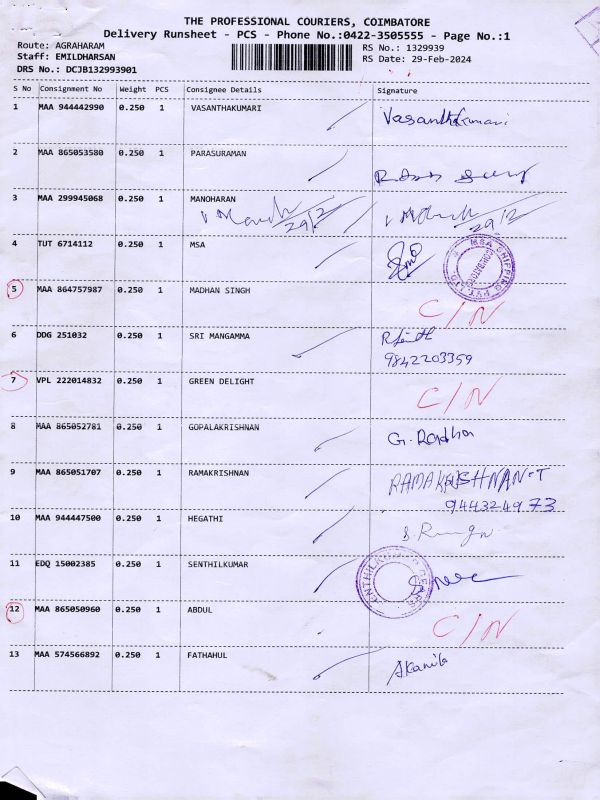 THE PROFESSIONAL COURIERS, COIMBATORE
Delivery Runsheet - PCS - Phone No.:0422-3505555 - Page No.:1
Route: AGRAHARAM
RS No.: 1329939
Staff: EMILDHARSAN
RS Date: 29-Feb-2024
DRS No.: DCJB132993901
S No Consignment No Weight PCS Consignee Details Signature
1 MAA 944442990 0.250 1 VASANTHAKUMARI Vasanthakumari
2 MAA 865053580 0.250 1 PARASURAMAN
3 MAA 299945068 0.250 1 MANOHARAN
29/2 29/2
4 TUT 6714112 0.250 1 MSA
MSA SHIPPING PVT LTD
5 MAA 864757987 0.250 1 MADHAN SINGH
C/N
6 DDG 251032 0.250 1 SRI MANGAMMA
9842203359
7 VPL 222014832 0.250 1 GREEN DELIGHT C/N
8 MAA 865052781 0.250 1 GOPALAKRISHNAN G. Radha
9 MAA 865051707 0.250 1 RAMAKRISHNAN RAMAKRISHNAN-T
9443249 73
10 MAA 944447500 0.250 1 HEGATHI
11 EDQ 15002385 0.250 1 SENTHILKUMAR
12 MAA 865050960 0.250 1 ABDUL C/N
13 MAA 574566892 0.250 1 FATHAHUL